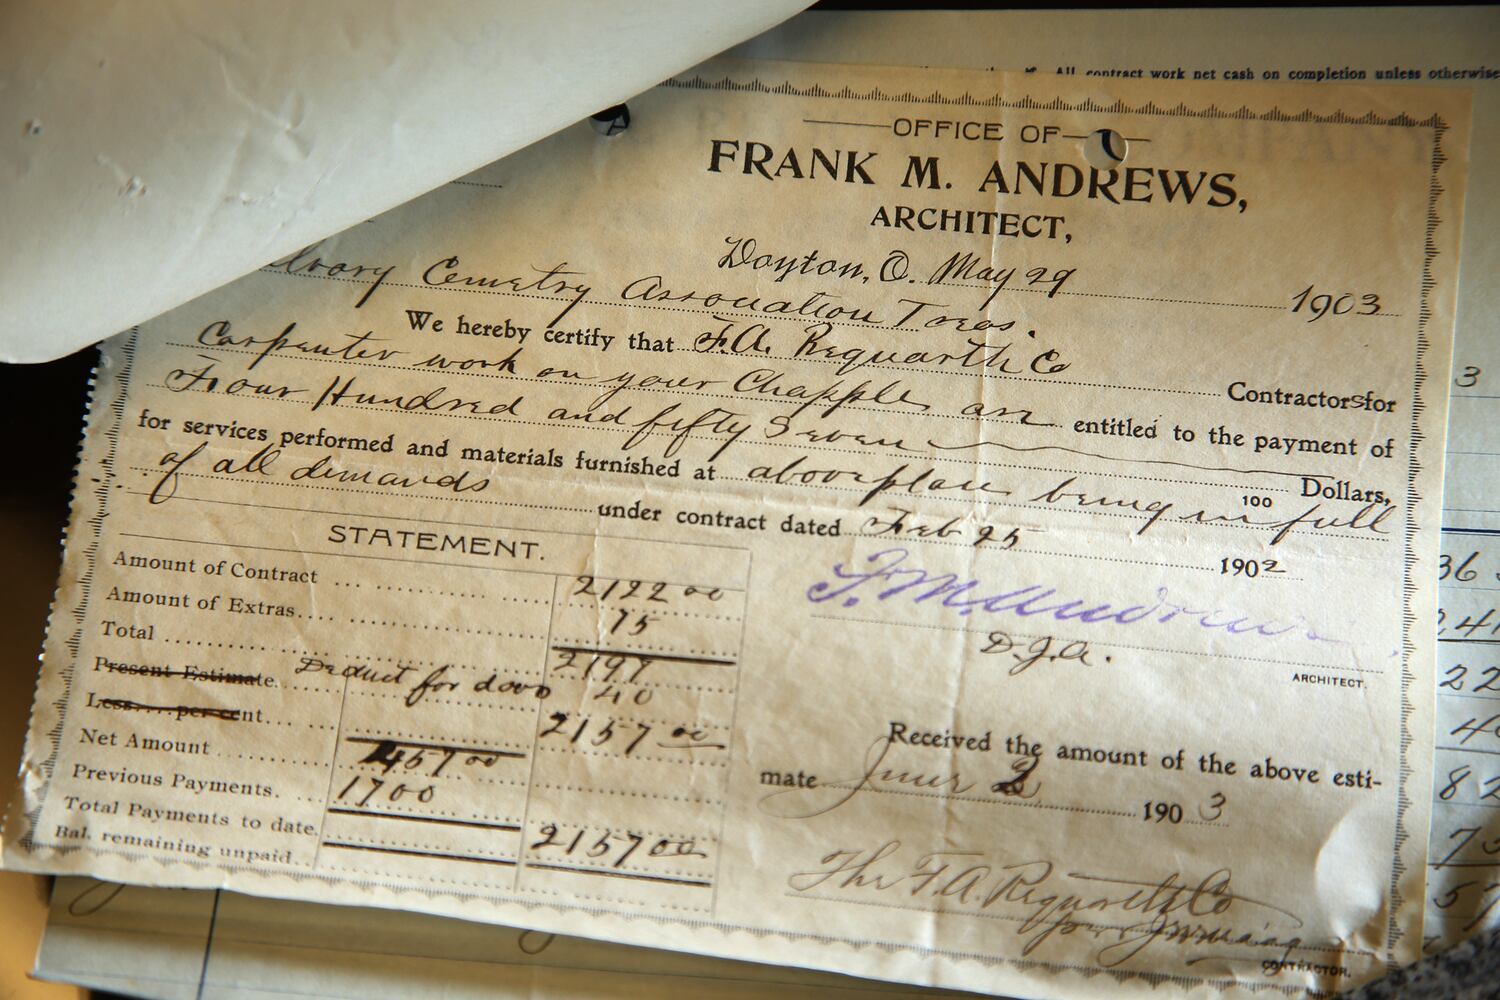 All contract work net cash on completion unless otherwise
OFFICE OF
FRANK M. ANDREWS,
ARCHITECT,
Dayton, O. May 29 1903
Cemetry Association Treas.
We hereby certify that F.A. Requarth Co
Carpenter work on your Chapple are Contractors for
entitled to the payment of
Four Hundred and fifty Seven
100 Dollars,
for services performed and materials furnished at above place being in full
of all demands under contract dated Feb 25 1902
STATEMENT.
Amount of Contract 2122 00
Amount of Extras 75
Total 2197
Present Estimate. Deduct for door 40
Less per cent 2157 00
Net Amount 457 00
Previous Payments. 1700
Total Payments to date. 2157 00
Bal. remaining unpaid
F. M. Andrews
D.J.A.
ARCHITECT.
Received the amount of the above esti-
mate June 2 1903
The F.A. Requarth Co
CONTRACTOR.
3
36
24
22
4
82
7
5